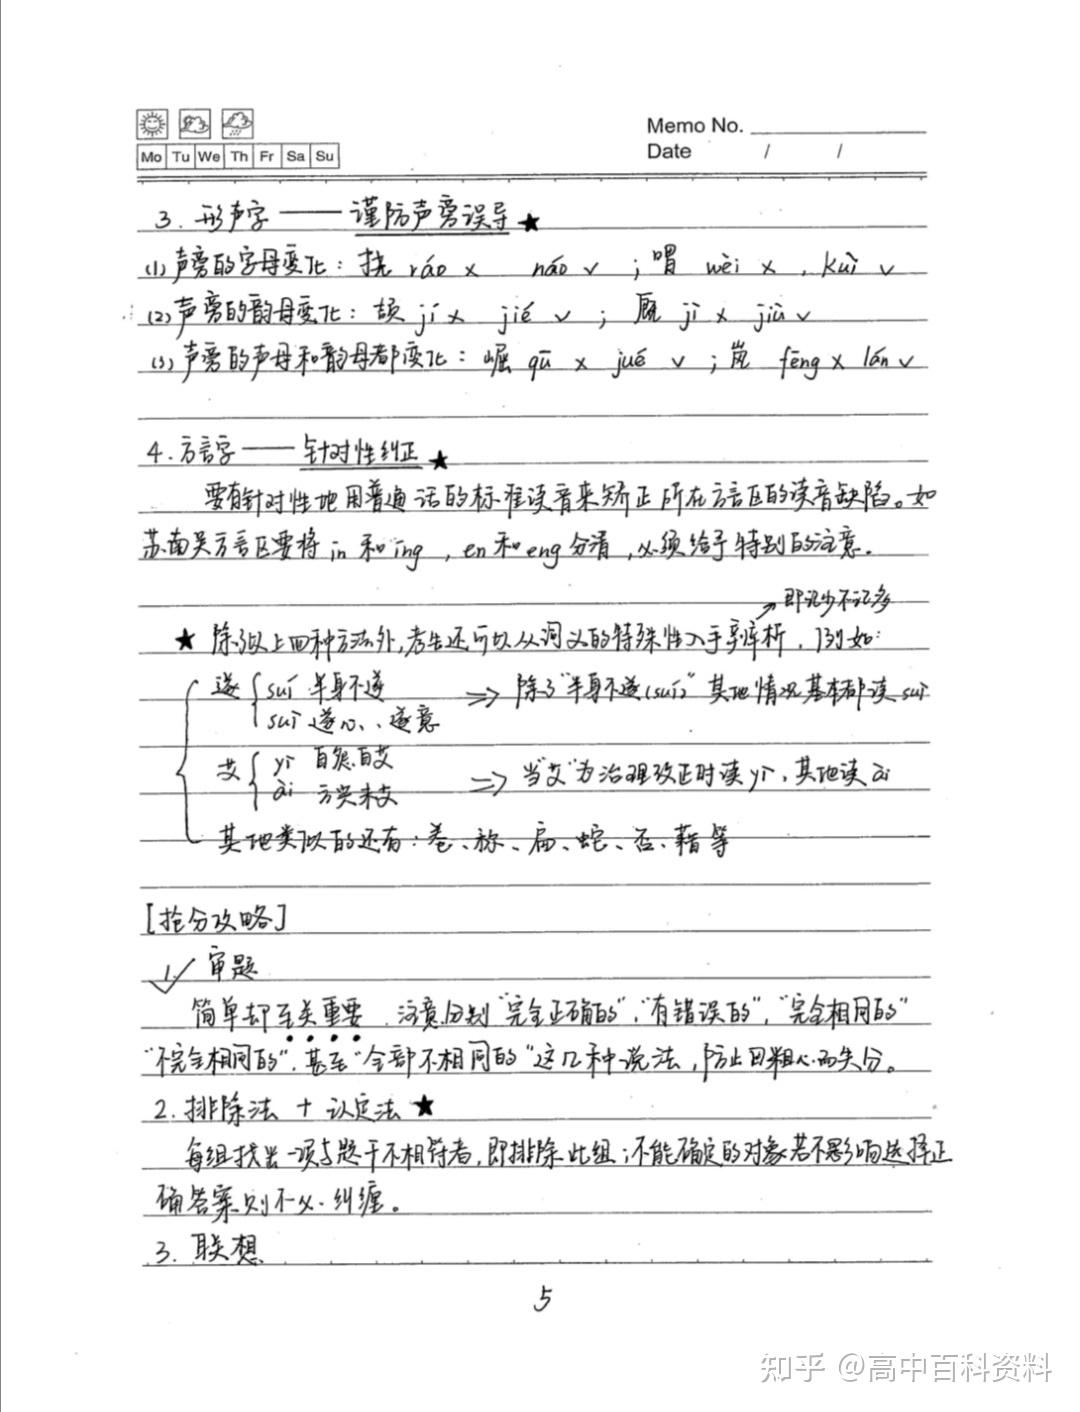 Memo No.
Mo Tu We Th Fr Sa Su
Date / /
3. 形声字 —— 谨防声旁误导 ★
(1) 声旁的字母变化: 挠 ráo × náo ✓ ; 喟 wèi × , kuì ✓
(2) 声旁的韵母变化: 颉 jí × jié ✓ ; 厩 jì × jiù ✓
(3) 声旁的声母和韵母都变化: 崛 qū × jué ✓ ; 岚 fēng × lán ✓
4. 方言字 —— 针对性纠正 ★
要有针对性地用普通话的标准读音来矫正所在方言区的读音缺陷。如
苏南吴方言区要将 in 和 ing , en 和 eng 分清 , 必须给予特别的注意.
即记少不记多
★ 除了以上四种方法外, 考生还可以从词义的特殊性入手辨析 , 例如:
遂 suí 半身不遂 => 除了"半身不遂(suí)" 其他情况基本都读 suì
suì 遂心、遂意
艾 yì 自怨自艾
ài 方兴未艾 => 当"艾"为治理改正时读 yì , 其他读 ài
其他类似的还有: 卷、称、扁、蛇、否、藉 等
[抢分攻略]
1. 审题
简单却至关重要 . 注意分别 "完全正确的", "有错误的", "完全相同的"
"不完全相同的", 甚至 "全部不相同的" 这几种说法 , 防止因粗心而失分。
2. 排除法 + 认定法 ★
每组找出一项与题干不相符者, 即排除此组; 不能确定的对象若不影响选择正
确答案则不必纠缠。
3. 联想
5
知乎 @高中百科资料